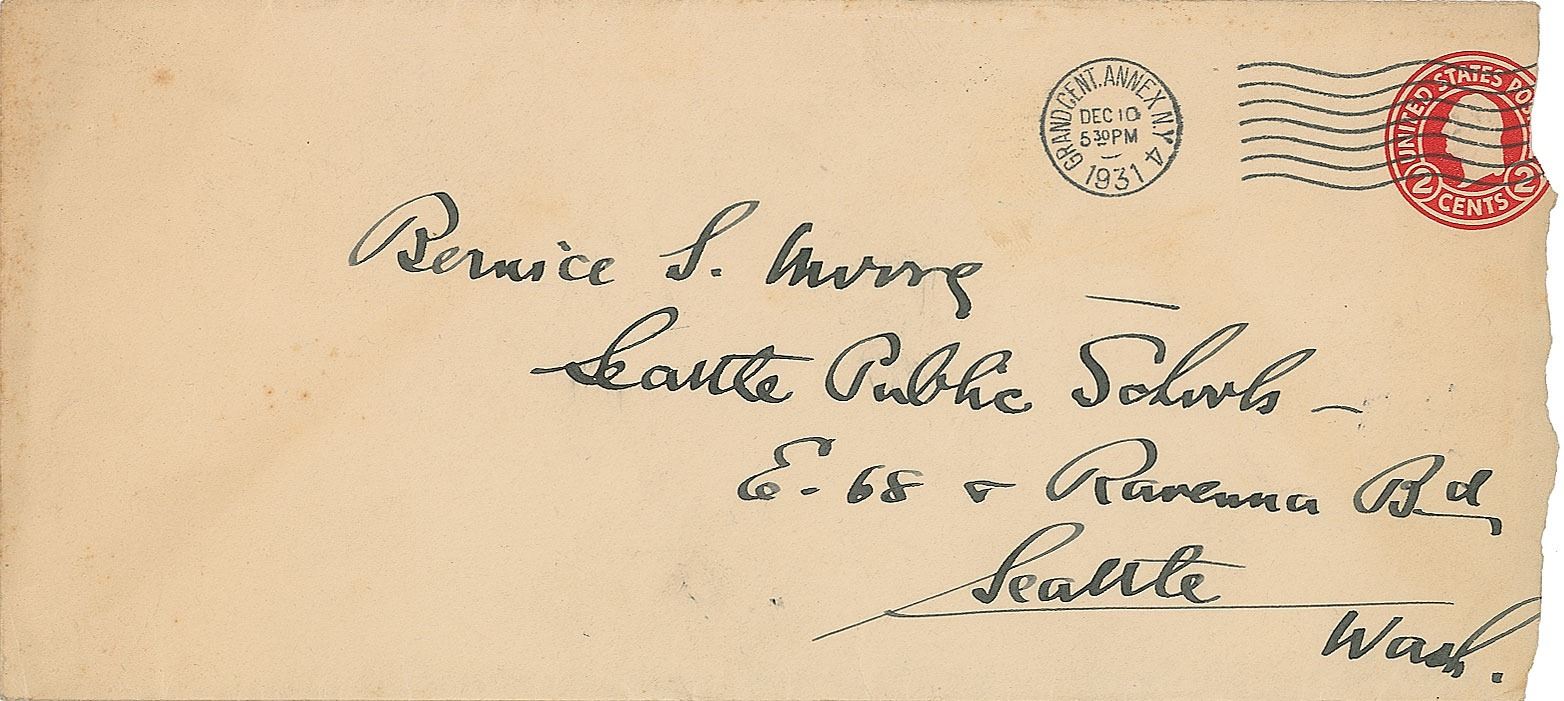 GRAND CENT. ANNEX N.Y. 4
DEC 10
5 30 PM
1931
UNITED STATES PO
2 CENTS 2
Bernice S. Moore —
Seattle Public Schools —
E. 68 & Ravenna Bd
Seattle
Wash.